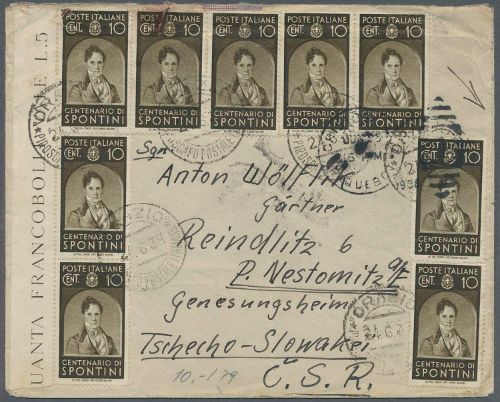 UANTA FRANCOBOLLI L.5
POSTE ITALIANE POSTE ITALIANE POSTE ITALIANE POSTE ITALIANE POSTE ITALIANE
CENT. 10 CENT. 10 CENT. 10 CENT. 10 CENT. 10
CENTENARIO DI CENTENARIO DI CENTENARIO DI CENTENARIO DI CENTENARIO DI
SPONTINI SPONTINI SPONTINI SPONTINI SPONTINI
CENT. 10
CENTENARIO DI
SPONTINI
POSTE ITALIANE
CENT. 10
CENTENARIO DI
SPONTINI
CENT. 10
CENTENARIO DI
SPONTINI
POSTE ITALIANE
CENT. 10
CENTENARIO DI
SPONTINI
Sgn
Anton Wölflik
Gärtner
Reindlitz 6
P. Nestomitz
Genesungsheim
Tschecho-Slowakei
Č.S.R.
10.-/79
ORAZIO
24.6.38